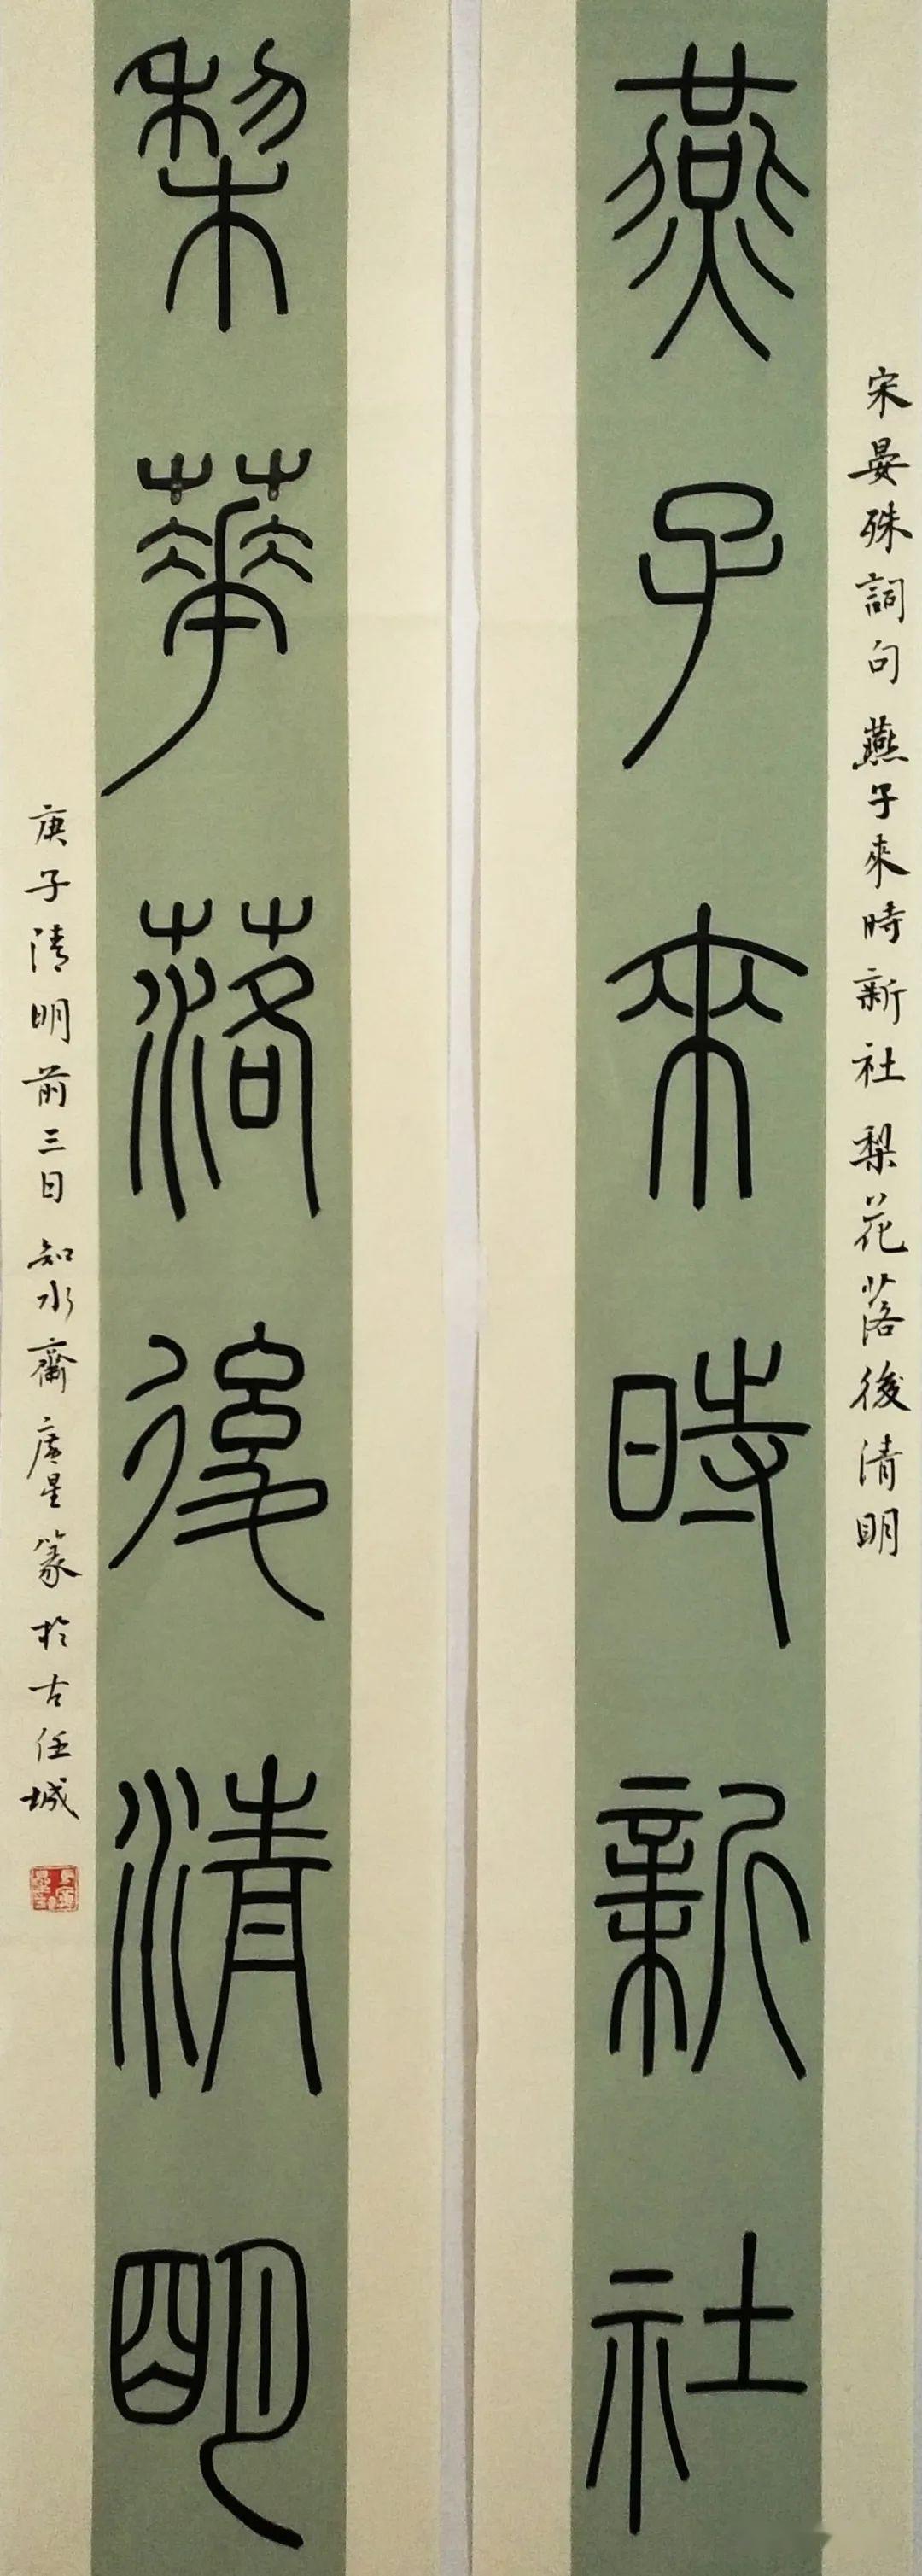 宋晏殊詞句 燕子來時新社 梨花落後清明
燕子來時新社
梨華落後清明
庚子清明前三日 知水齋 星篆於古任城